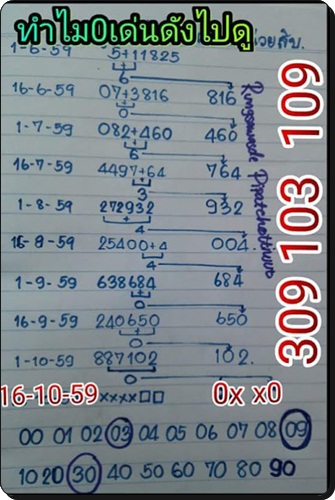 ทำไม0เด่นดังไปดู
1-6-59 5+11825
6
16-6-59 07+3816 816
0
1-7-59 082+460 460
6
16-7-59 4497+64 764
3
1-8-59 272932 932
4
16-8-59 25400+4 004
4
1-9-59 638684 684
0
16-9-59 240650 650
0
1-10-59 887102 102.
0
16-10-59 xxxx□□ 0x x0
00 01 02 03 04 05 06 07 08 09
10 20 30 40 50 60 70 80 90
309 103 109